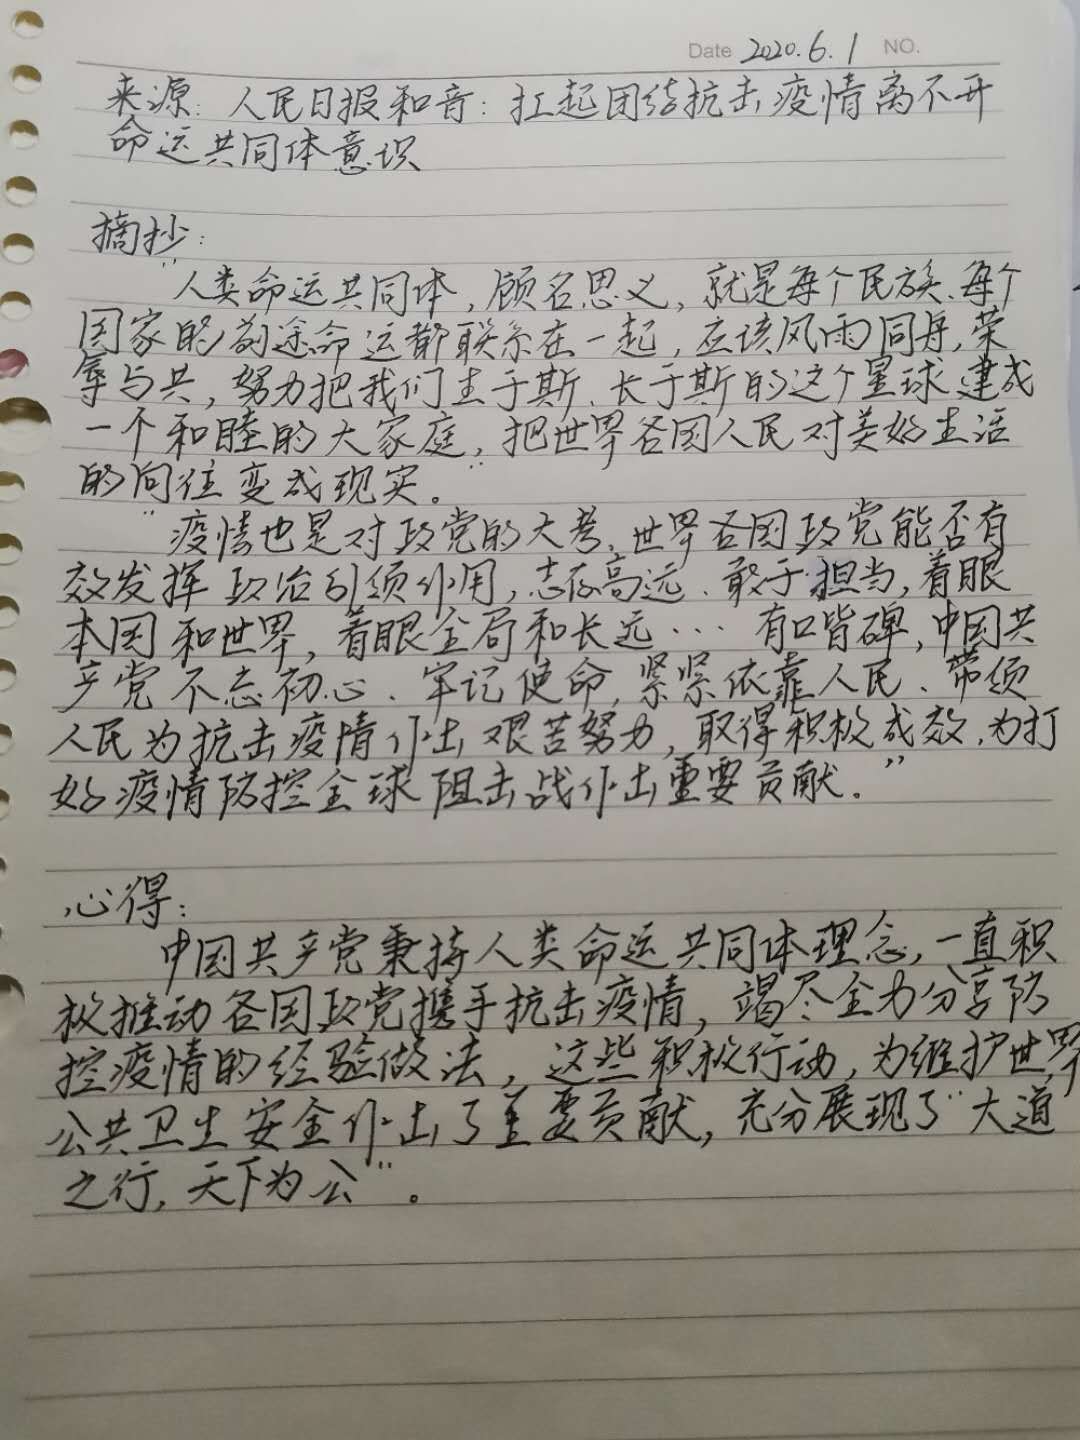 Date 2020.6.1 NO.
来源: 人民日报和音: 扛起团结抗击疫情离不开
命运共同体意识
摘抄:
"人类命运共同体，顾名思义，就是每个民族、每个
国家的前途命运都联系在一起，应该风雨同舟，荣
辱与共，努力把我们生于斯、长于斯的这个星球建成
一个和睦的大家庭，把世界各国人民对美好生活
的向往变成现实。"
"疫情也是对政党的大考，世界各国政党能否有
效发挥政治引领作用，志存高远、敢于担当，着眼
本国和世界，着眼全局和长远… 有口皆碑，中国共
产党不忘初心、牢记使命，紧紧依靠人民、带领
人民为抗击疫情作出艰苦努力，取得积极成效，为打
好疫情防控全球阻击战作出重要贡献。"
心得:
中国共产党秉持人类命运共同体理念，一直积
极推动各国政党携手抗击疫情，竭尽全力分享防
控疫情的经验做法，这些积极行动，为维护世界
公共卫生安全作出了重要贡献，充分展现了"大道
之行，天下为公"。